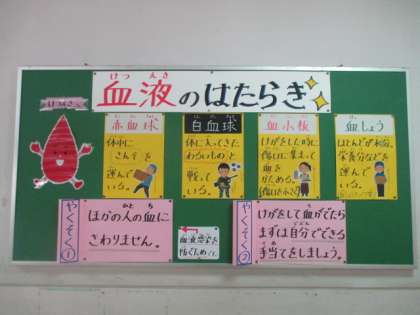 血液のはたらき
けつえき
赤血球
体中に
さんそを
運んで
いる。
白血球
体に入ってきた
わるいものと
戦って
いる。
血小板
けがをした時に
傷口に集まって
血を
かためる。
血しょう
ほとんどが水分。
栄養分などを
運んで
いる。
やくそく①
ほかの人の血に
さわりません。
やくそく②
けがをして血がでたら
まずは自分でできる
手当てをしましょう。